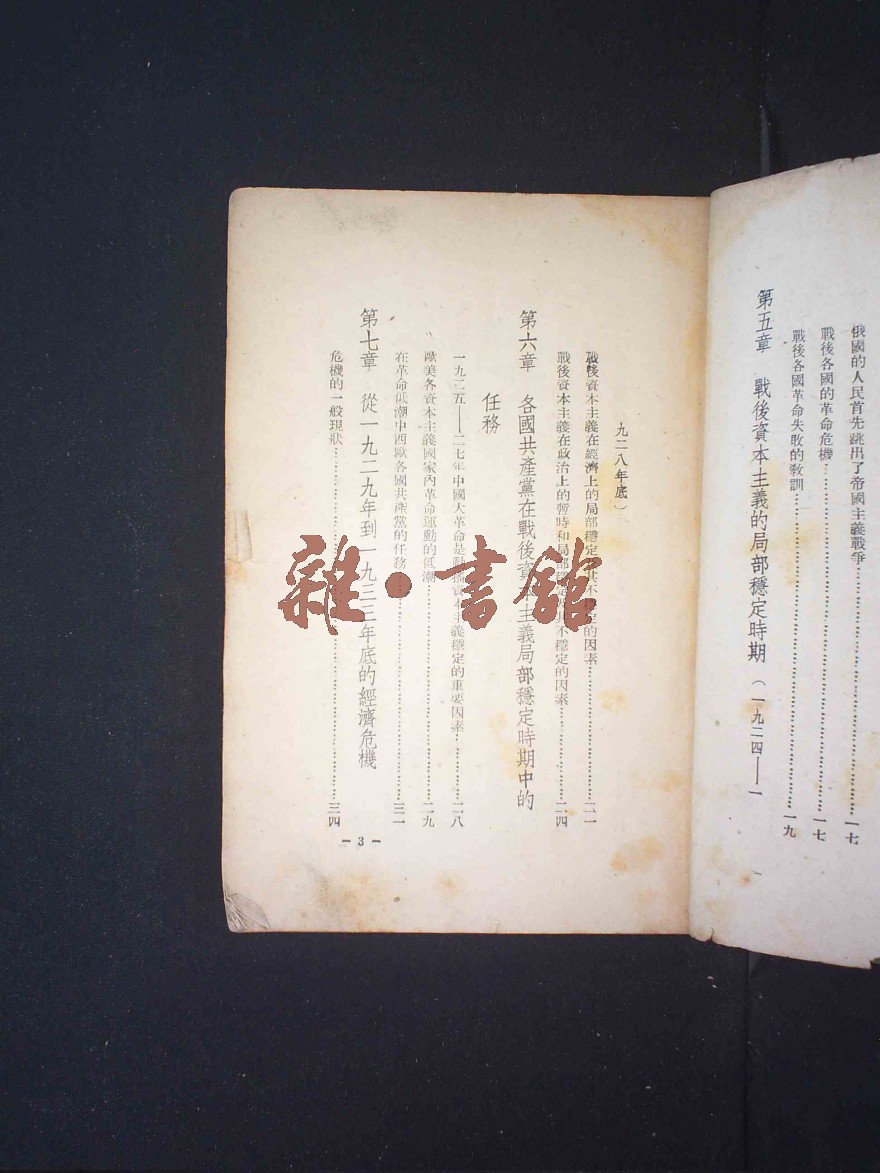 俄國的人民首先跳出了帝國主義戰爭…………一七
戰後各國的革命危機…………一七
戰後各國革命失敗的教訓…………一九
第五章 戰後資本主義的局部穩定時期(一九二四——一
九二八年底)
戰後資本主義在經濟上的局部穩定 其不 定的因素…………二一
戰後資本主義在政治上的暫時和局部穩定 其不穩定的因素…………二四
第六章 各國共產黨在戰後資 主義局部穩定時期中的
任務
一九二五——二七年中國大革命是動搖資本主義穩定的重要因素…………二八
歐美各資本主義國家內革命運動的低潮…………二九
在革命低潮中西歐各國共產黨的任務…………三一
第七章 從一九二九年到一九三三年底的經濟危機
危機的一般現狀…………三四
— 3 —
雜·書館